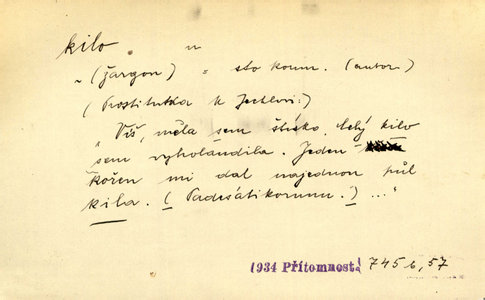 kilo n
~ (žargon) = sto korun. (autor)
(Prostitutka k Jechlovi:)
"Víš, měla sem štěstko, celý kilo
sem vyholandila. Jeden
kořen mi dal najednou půl
kila. (Padesátikorunu.) ..."
1934 Přítomnost 745 b, 57